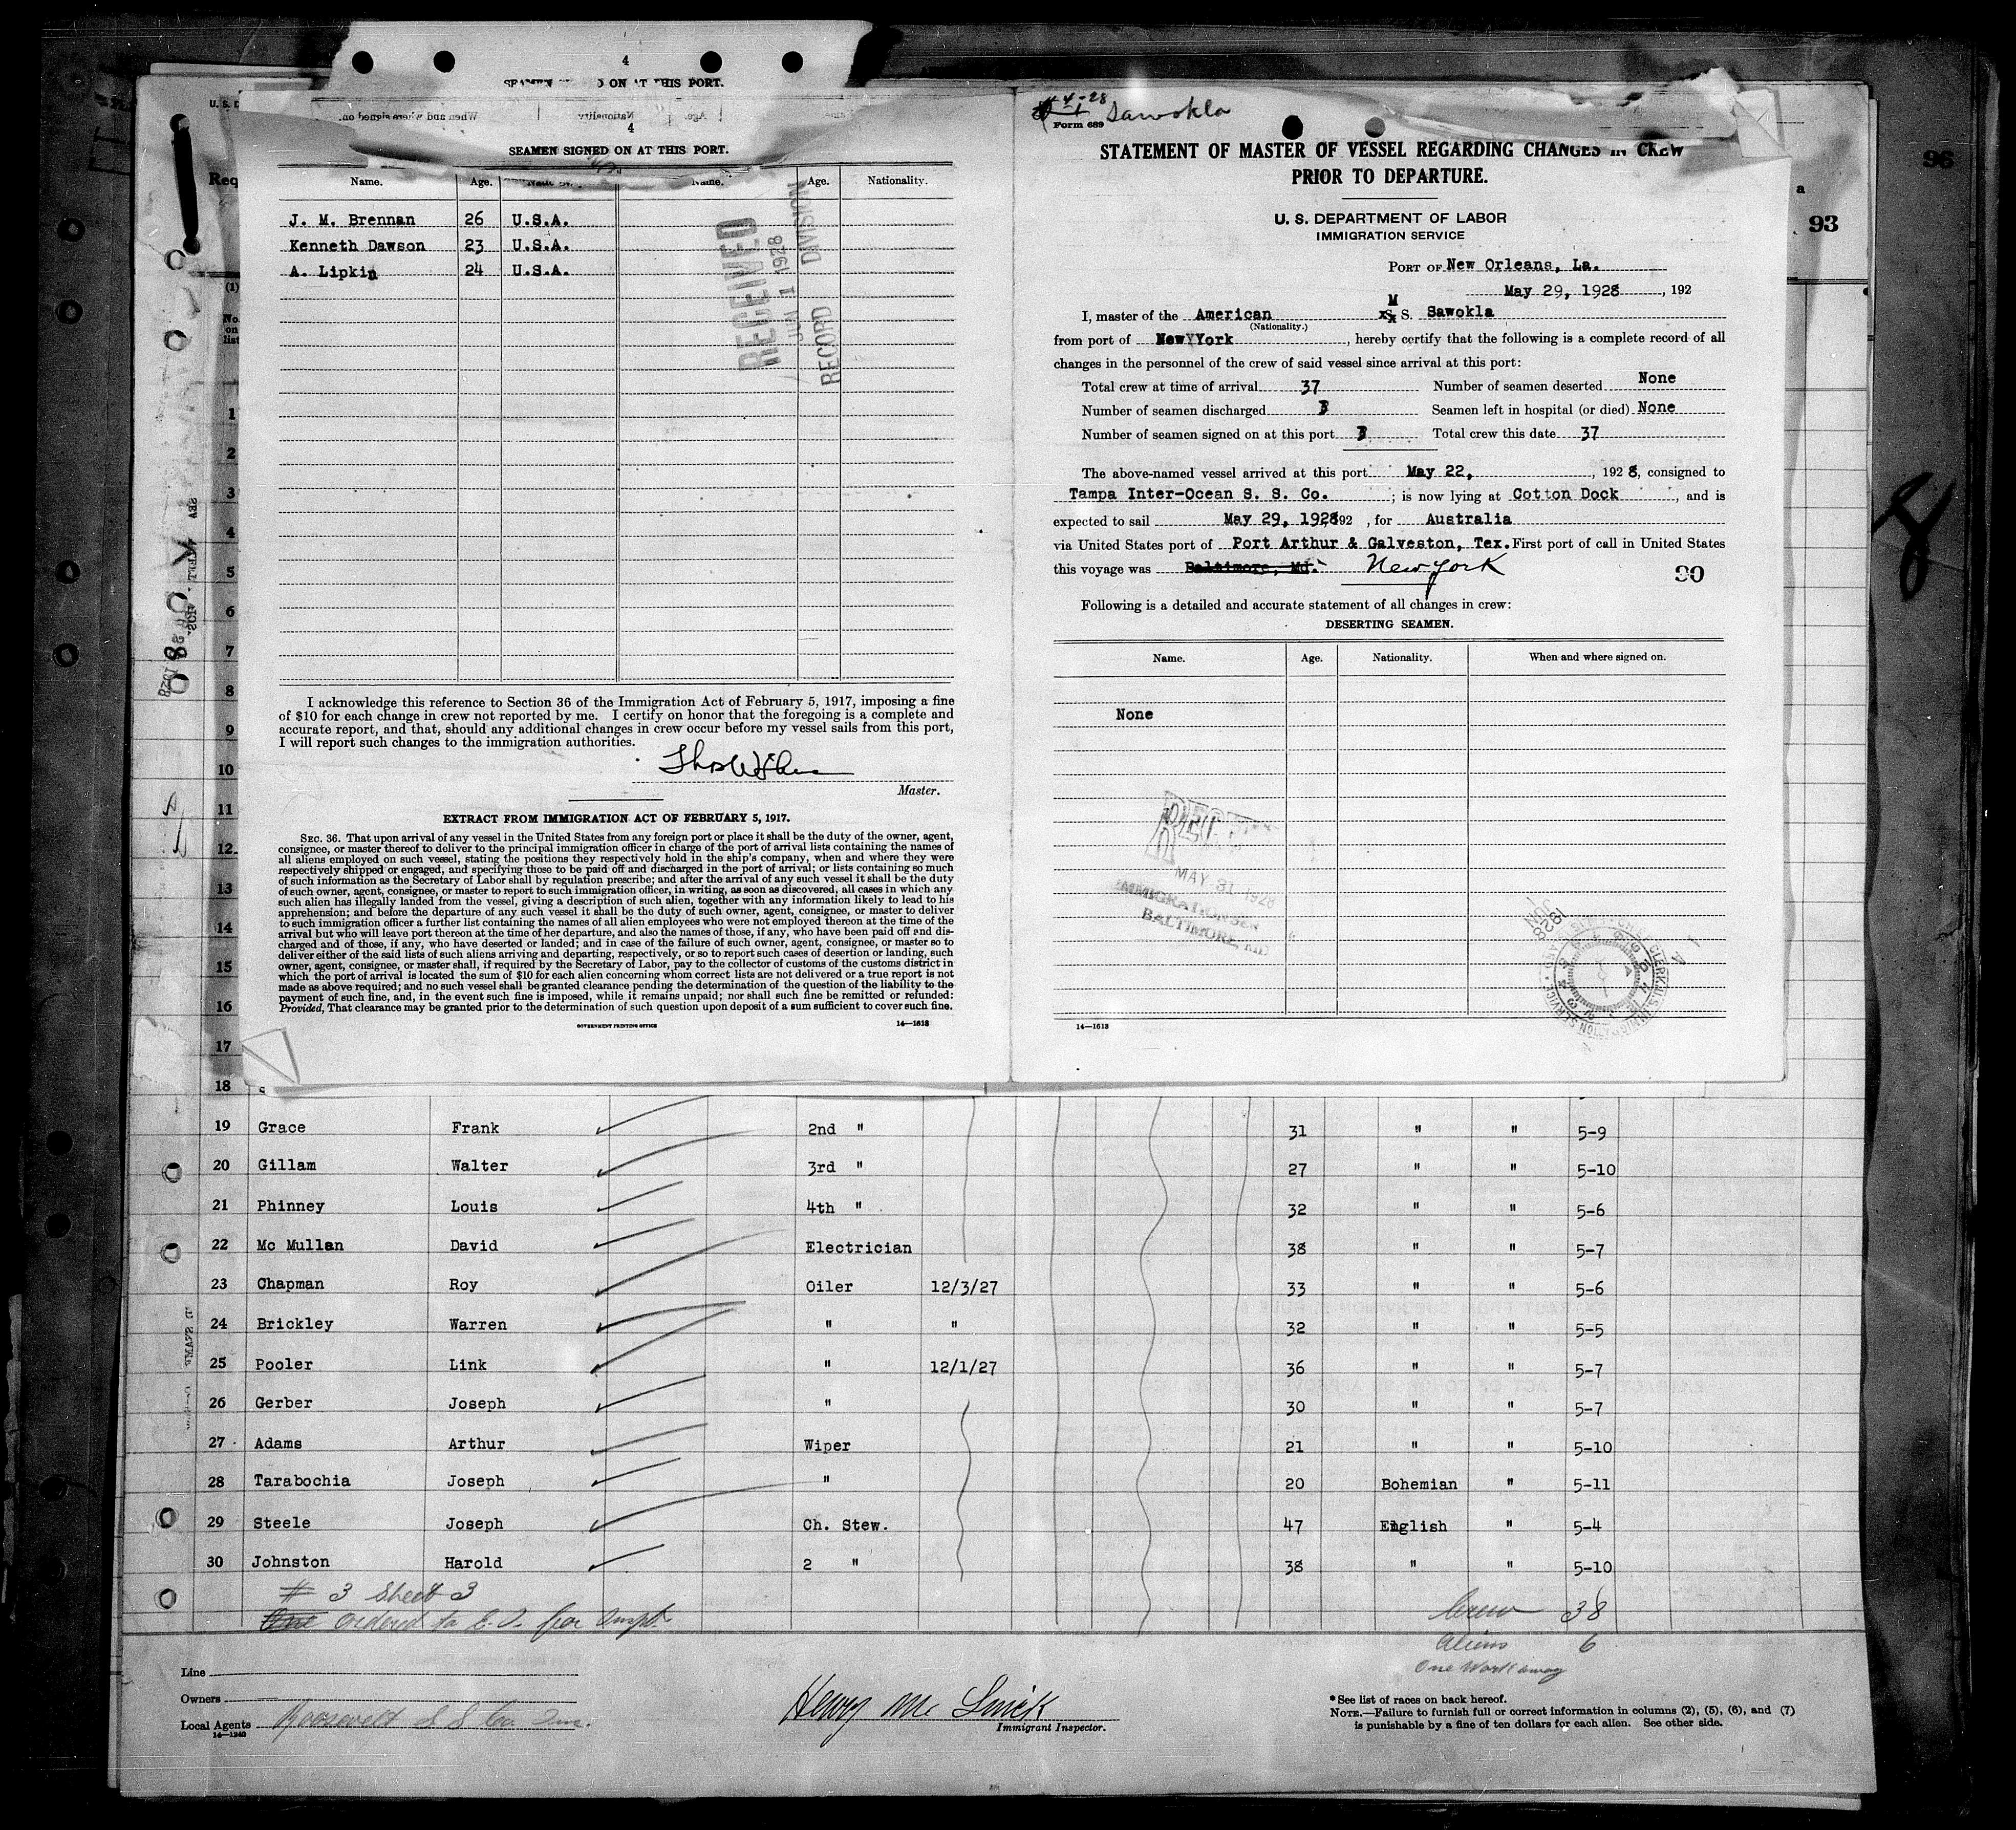 4
SEAMEN ON AT THIS PORT.
4
SEAMEN SIGNED ON AT THIS PORT.
Name. Age. Name. Age. Nationality.
J. M. Brennan 26 U.S.A.
Kenneth Dawson 23 U.S.A.
A. Lipkin 24 U.S.A.
RECEIVED
JUN 1 1928
RECORD DIVISION
I acknowledge this reference to Section 36 of the Immigration Act of February 5, 1917, imposing a fine
of $10 for each change in crew not reported by me. I certify on honor that the foregoing is a complete and
accurate report, and that, should any additional changes in crew occur before my vessel sails from this port,
I will report such changes to the immigration authorities.
Master.
EXTRACT FROM IMMIGRATION ACT OF FEBRUARY 5, 1917.
SEC. 36. That upon arrival of any vessel in the United States from any foreign port or place it shall be the duty of the owner, agent,
consignee, or master thereof to deliver to the principal immigration officer in charge of the port of arrival lists containing the names of
all aliens employed on such vessel, stating the positions they respectively hold in the ship's company, when and where they were
respectively shipped or engaged, and specifying those to be paid off and discharged in the port of arrival; or lists containing so much
of such information as the Secretary of Labor shall by regulation prescribe; and after the arrival of any such vessel it shall be the duty
of such owner, agent, consignee, or master to report to such immigration officer, in writing, as soon as discovered, all cases in which any
such alien has illegally landed from the vessel, giving a description of such alien, together with any information likely to lead to his
apprehension; and before the departure of any such vessel it shall be the duty of such owner, agent, consignee, or master to deliver
to such immigration officer a further list containing the names of all alien employees who were not employed thereon at the time of the
arrival but who will leave port thereon at the time of her departure, and also the names of those, if any, who have been paid off and dis-
charged and of those, if any, who have deserted or landed; and in case of the failure of such owner, agent, consignee, or master so to
deliver either of the said lists of such aliens arriving and departing, respectively, or so to report such cases of desertion or landing, such
owner, agent, consignee, or master shall, if required by the Secretary of Labor, pay to the collector of customs of the customs district in
which the port of arrival is located the sum of $10 for each alien concerning whom correct lists are not delivered or a true report is not
made as above required; and no such vessel shall be granted clearance pending the determination of the question of the liability to the
payment of such fine, and, in the event such fine is imposed, while it remains unpaid; nor shall such fine be remitted or refunded:
Provided, That clearance may be granted prior to the determination of such question upon deposit of a sum sufficient to cover such fine.
GOVERNMENT PRINTING OFFICE 14—1613
Sawokla
Form 689
STATEMENT OF MASTER OF VESSEL REGARDING CHANGES IN CREW
PRIOR TO DEPARTURE.
U. S. DEPARTMENT OF LABOR
IMMIGRATION SERVICE
PORT OF New Orleans, La.
May 29, 1928, 192
I, master of the American M S. Sawokla
(Nationality.)
from port of New York, hereby certify that the following is a complete record of all
changes in the personnel of the crew of said vessel since arrival at this port:
Total crew at time of arrival 37 Number of seamen deserted None
Number of seamen discharged 3 Seamen left in hospital (or died) None
Number of seamen signed on at this port 3 Total crew this date 37
The above-named vessel arrived at this port May 22, 1928, consigned to
Tampa Inter-Ocean S. S. Co. ; is now lying at Cotton Dock, and is
expected to sail May 29, 1928 192, for Australia
via United States port of Port Arthur & Galveston, Tex. First port of call in United States
this voyage was Baltimore, Md. New York
90
Following is a detailed and accurate statement of all changes in crew:
DESERTING SEAMEN.
Name. Age. Nationality. When and where signed on.
None
MAY 31 1928
BALTIMORE, MD.
14—1613
96
a
93
Req
(1)
No.
on
list
1
2
3
4
5
6
7
8
9
10
11
12
13
14
15
16
17
18
19 Grace Frank 2nd " 31 " " 5-9
20 Gillam Walter 3rd " 27 " " 5-10
21 Phinney Louis 4th " 32 " " 5-6
22 Mc Mullan David Electrician 38 " " 5-7
23 Chapman Roy Oiler 12/3/27 33 " " 5-6
24 Brickley Warren " " 32 " " 5-5
25 Pooler Link " 12/1/27 36 " " 5-7
26 Gerber Joseph " 30 " " 5-7
27 Adams Arthur Wiper 21 " " 5-10
28 Tarabochia Joseph " 20 Bohemian " 5-11
29 Steele Joseph Ch. Stew. 47 English " 5-4
30 Johnston Harold 2 " 38 " " 5-10
# 3 Sheet 3
One ordered to E. I. for Inspt.
Crew 38
Aliens 6
One Workaway
Line
Owners
Local Agents Roosevelt S S Co. Inc.
14—1240
Henry Mc
Immigrant Inspector.
* See list of races on back hereof.
NOTE.—Failure to furnish full or correct information in columns (2), (5), (6), and (7)
is punishable by a fine of ten dollars for each alien. See other side.